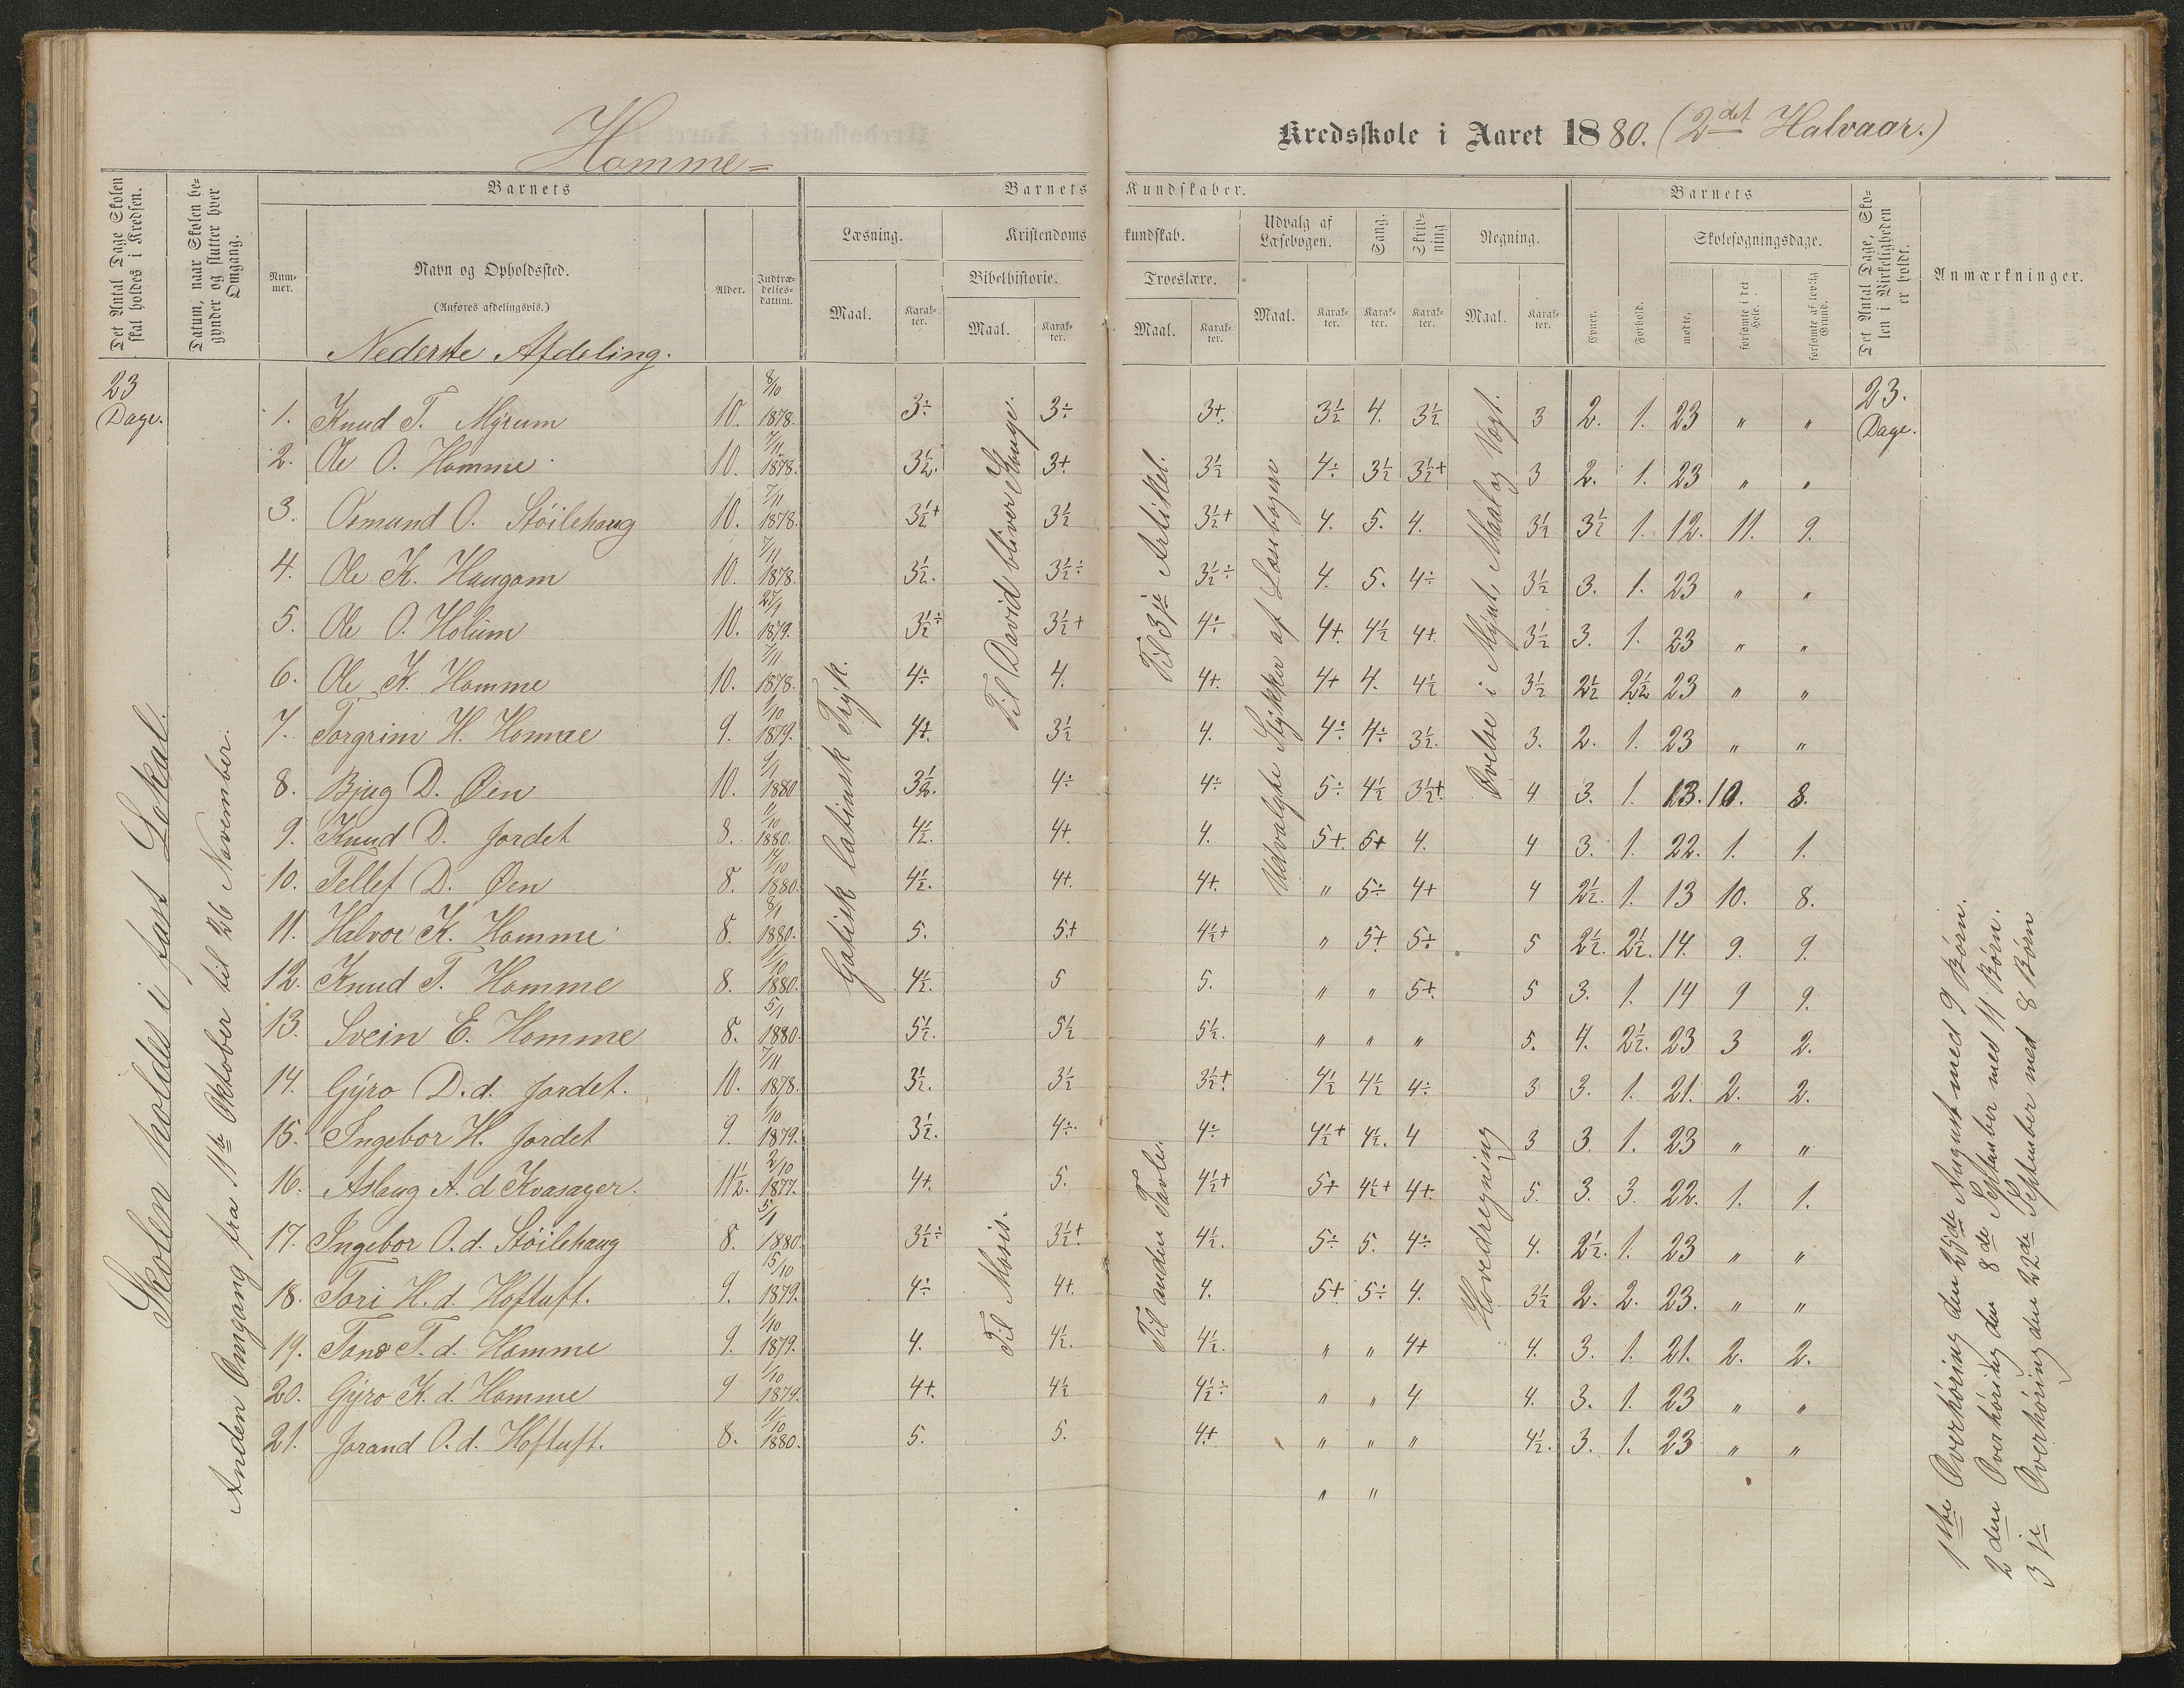 Homme=
Kredsskole i Aaret 1880. (2det Halvaar.)
Det Antal Dage Skolen skal holdes i Kredsen.
Datum, naar Skolen begynder og slutter hver Omgang.
Barnets
Nummer.
Navn og Opholdssted.
(Anføres afdelingsvis.)
Nederste Afdeling.
Alder.
Indtrædelsesdatum.
Barnets Kundskaber.
Læsning.
Maal.
Karakter.
Kristendomskundskab.
Bibelhistorie.
Maal.
Karakter.
Troeslære.
Maal.
Karakter.
Udvalg af Læsebogen.
Maal.
Karakter.
Sang.
Karakter.
Skrivning
Karakter.
Regning.
Maal.
Karakter.
Barnets
Evner.
Forhold.
Skolesøgningsdage.
mødte.
forsømte i det Hele.
forsømte af lovlig Grund.
Det Antal Dage, Skolen i Virkeligheden er holdt.
Anmærkninger.
23 Dage.
Skolen holdes i fast Lokal.
Anden Omgang fra 11te Oktober til 26 November.
Gotisk latinsk Tryk.
Til David bliver Konge.
Til Mosis.
Til 3je Artikel.
Til anden Tavle.
Udvalgte Stykker af Læsebogen
Øvelse i Mynt, Maal og Vægt.
Hovedregning
23. Dage.
1. Knud T. Myrum 10. 8/10 1878. 3÷ 3÷ 3+. 3½ 4. 3½ 3 2. 1. 23 " "
2. Ole O. Homme 10. 7/11 1878. 3½. 3+. 3½ 4÷ 3½ 3½+ 3 2. 1. 23 " "
3. Osmund O. Stöilehaug 10. 7/11 1878. 3½+ 3½ 3½+ 4. 5. 4. 3½ 3½ 1. 12. 11. 9.
4. Ole K. Haugom 10. 7/11 1878. 3½. 3½÷ 3½÷ 4. 5. 4÷ 3½ 3. 1. 23 " "
5. Ole O. Holum 10. 27/1 1879. 3½÷ 3½+ 4÷ 4+. 4½ 4+. 3½ 3. 1. 23 " "
6. Ole K. Homme 10. 7/11 1878. 4÷ 4. 4+. 4+ 4. 4½ 3½ 2½ 2½ 23 " "
7. Torgrim H. Homme 9. 1/10 1879. 4+. 3½ 4. 4÷ 4÷ 3½. 3. 2. 1. 23 " "
8. Bjug D. Øen 10. 9/1 1880 3½. 4÷ 4÷ 5÷ 4½ 3½+. 4 3. 1. 13. 10. 8.
9. Knud D. Jordet 8. 11/10 1880. 4½. 4+. 4. 5+. 5+ 4. 4 3. 1. 22. 1. 1.
10. Tellef D. Øen 8. 14/10 1880. 4½. 4+. 4+. " 5÷ 4+ 4 2½. 1. 13 10. 8.
11. Halvor K. Homme 8. 8/1 1880. 5. 5+ 4½+ " 5+ 5÷ 5 2½. 2½. 14. 9. 9.
12. Knud T. Homme 8. 11/10 1880. 4½. 5 5. " " 5+. 5 3. 1. 14 9 9.
13. Svein E. Homme 8. 5/1 1880. 5½. 5½ 5½. " " " 5. 4. 2½. 23 3 2.
14. Gyro D.d. Jordet. 10. 7/11 1878. 3½. 3½ 3½+ 4½ 4½ 4÷ 3 3. 1. 21. 2. 2.
15. Ingebor H. Jordet 9. 1/10 1879. 3½. 4÷ 4÷ 4½+ 4½. 4 3 3. 1. 23 " "
16. Aslaug A.d Kvasager. 11½. 2/10 1877. 4+. 5. 4½+ 5+ 4½+ 4+. 5. 3. 3. 22. 1. 1.
17. Ingebor O.d. Stöilehaug 8. 5/1 1880. 3½÷ 3½+ 4½. 5÷ 5. 4÷ 4. 2½. 1. 23 " "
18. Tori H.d. Hoftuft. 9. 15/10 1879. 4÷ 4+. 4. 5+ 5÷ 4. 3½ 2. 2. 23. " "
19. Tone T.d. Homme 9. 1/10 1879. 4. 4½. 4½. " " 4+ 4. 3. 1. 21. 2. 2.
20. Gyro K.d. Homme 9 1/10 1879. 4+. 4½ 4½÷ " " 4 4. 3. 1. 23 " "
21. Jorand O.d. Hoftuft. 8. 11/10 1880. 5. 5. 4+ " " " 4½. 3. 1. 23 " "
" "
1ste Overhöring den 25de August med 9 Börn.
2den Overhöring den 8de September med 11 Börn.
3je Overhöring den 22de September med 8 Börn